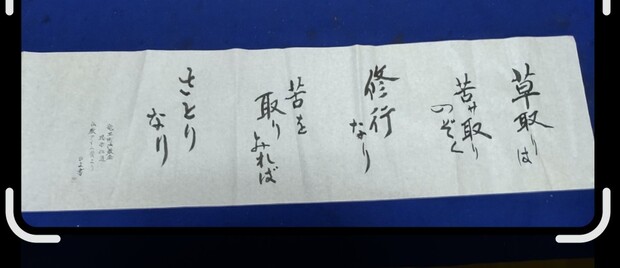 草取りは
苦取り
のぞく
修行
なり
苦を
取り
みれば
さとり
なり